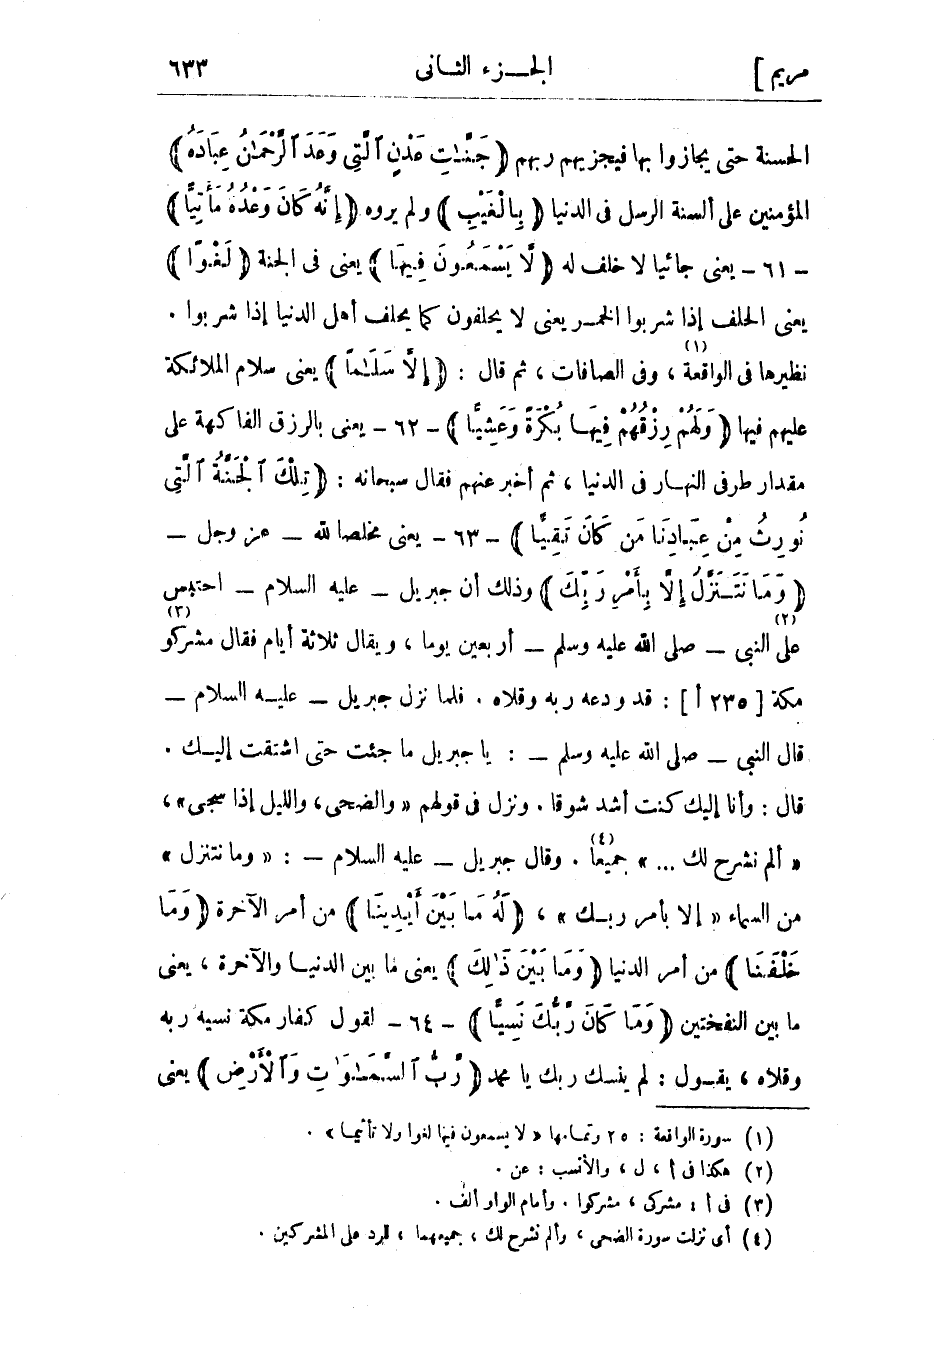 مريم] الجـــزء الثـانى ٦٣٣
الحسنة حتى يجازوا بها فيجزيهم ربهم ﴿ جَنَّـٰتِ عَدْنٍ ٱلَّتِى وَعَدَ ٱلرَّحْمَـٰنُ عِبَادَهُ ﴾
المؤمنين على ألسنة الرسل فى الدنيا ﴿ بِالْغَيْبِ ﴾ ولم يروه ﴿ إِنَّهُ كَانَ وَعْدُهُ مَأْتِيًّا ﴾
- ٦١ - يعنى جائيا لا خلف له ﴿ لَّا يَسْمَعُونَ فِيهَا ﴾ يعنى فى الجنة ﴿ لَغْوًا ﴾
يعنى الحلف إذا شربوا الخمـر يعنى لا يحلفون كما يحلف أهل الدنيا إذا شربوا .
نظيرها فى الواقعة (١) ، وفى الصافات ، ثم قال : ﴿ إِلَّا سَلَـٰمًا ﴾ يعنى سلام الملائكة
عليهم فيها ﴿ وَلَهُمْ رِزْقُهُمْ فِيهَـا بُكْرَةً وَعَشِيًّا ﴾ - ٦٢ - يعنى بالرزق الفاكهة على
مقدار طرفى النهـار فى الدنيا ، ثم أخبر عنهم فقال سبحانه : ﴿ تِلْكَ ٱلْجَنَّةُ ٱلَّتِى
نُورِثُ مِنْ عِبَادِنَا مَن كَانَ تَقِيًّا ﴾ - ٦٣ - يعنى مخلصا لله — عز وجل —
﴿ وَمَا نَتَـنَزَّلُ إِلَّا بِأَمْرِ رَبِّكَ ﴾ وذلك أن جبريل — عليه السلام — احتبس
على (٢) النبى — صلى الله عليه وسلم — أربعين يوما ، ويقال ثلاثة أيام فقال مشركو (٣)
مكة [ ٢٣٥ أ ] : قد ودعه ربه وقلاه . فلما نزل جبريل — عليـه السلام —
قال النبى — صلى الله عليه وسلم — : يا جبريل ما جئت حتى اشتقت إليـك .
قال : وأنا إليك كنت أشد شوقا . ونزل فى قولهم « والضحى ، والليل إذا سجى » ،
« ألم نشرح لك ... » جميعا (٤) . وقال جبريل — عليه السلام — : « وما نتنزل »
من السماء « إلا بأمر ربـك » ، ﴿ لَهُ مَا بَيْنَ أَيْدِينَا ﴾ من أمر الآخرة ﴿ وَمَا
خَلْفَنَا ﴾ من أمر الدنيا ﴿ وَمَا بَيْنَ ذَٰلِكَ ﴾ يعنى ما بين الدنيـا والآخرة ، يعنى
ما بين النفختين ﴿ وَمَا كَانَ رَبُّكَ نَسِيًّا ﴾ - ٦٤ - لقول كفار مكة نسيه ربه
وقلاه ، يقـول : لم ينسك ربك يا محمد ﴿ رَّبُّ ٱلسَّمَـٰوَٰتِ وَٱلْأَرْضِ ﴾ يعنى
(١) سورة الواقعة : ٢٥ وتمـامها « لا يسمعون فيها لغوا ولا تأثيما » .
(٢) هكذا فى أ ، ل ، والأنسب : عن .
(٣) فى أ : مشركى ، مشركوا . وأمام الواو ألف .
(٤) أى نزلت سورة الضحى ، وألم نشرح لك ، جميعهما ، للرد على المشركين .